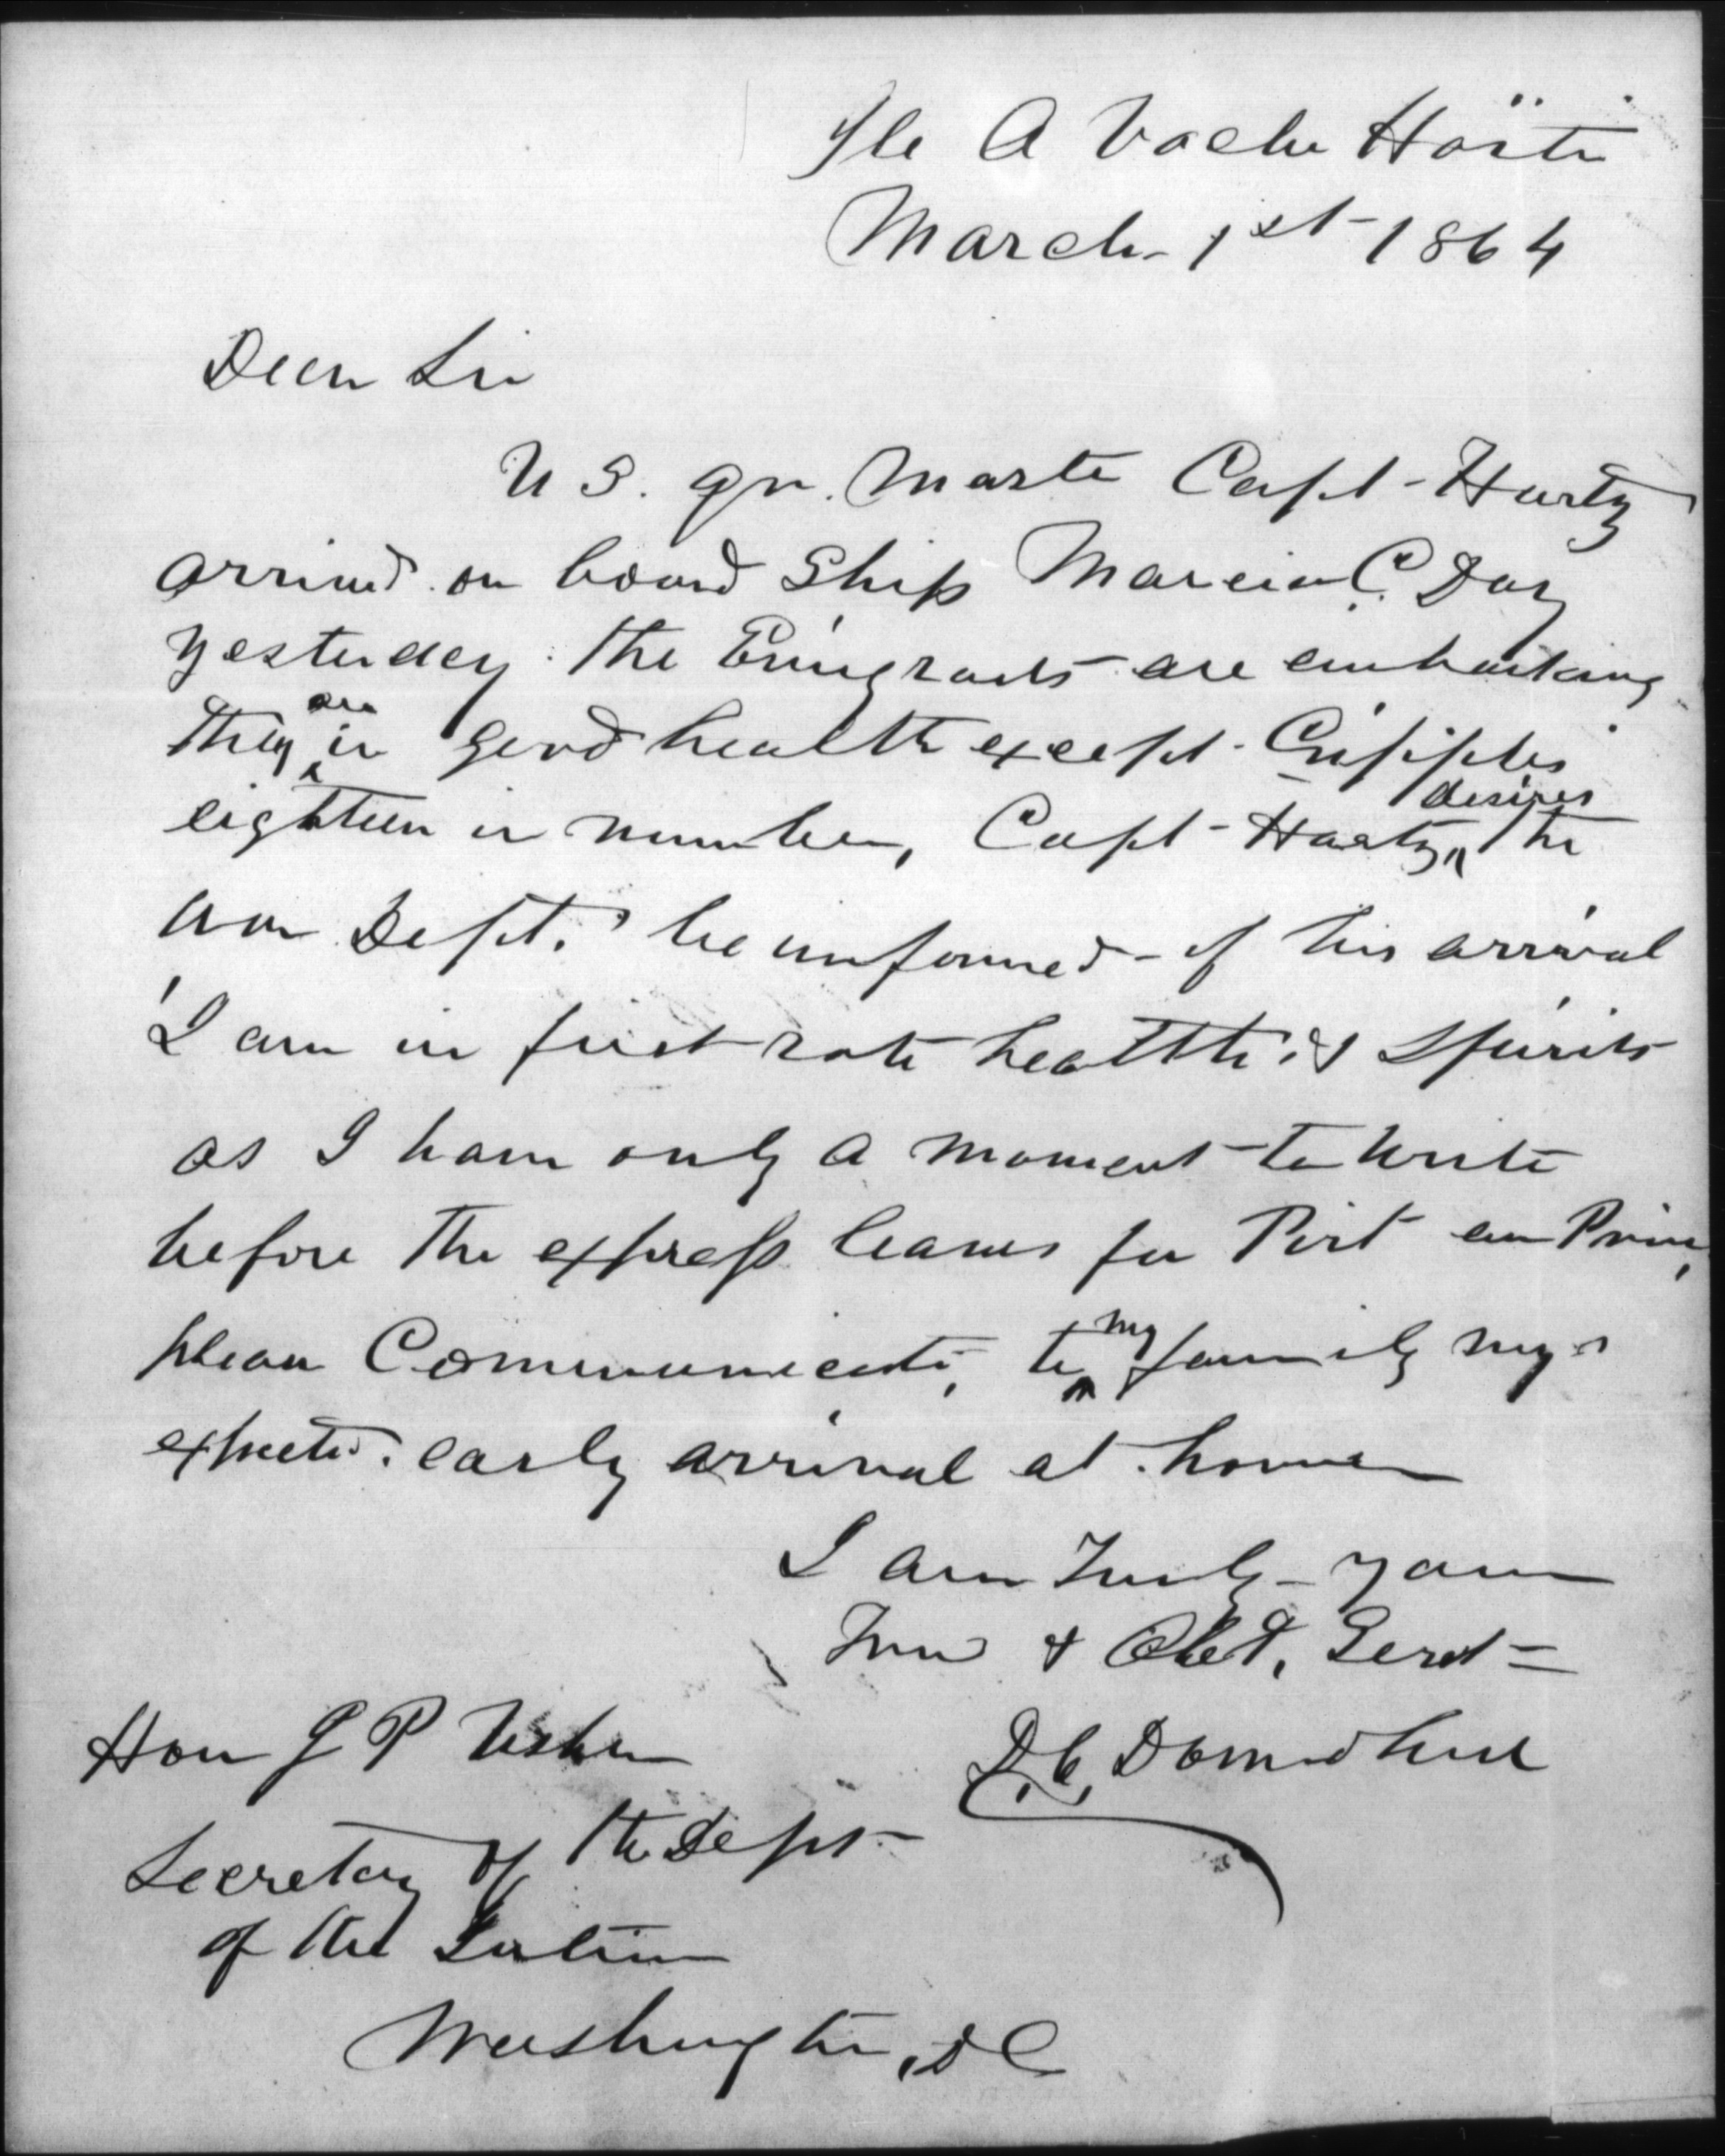 Ile A Vache Haïti
March 1st 1864
Dear Sir
U S. qr. Master Capt Hartz
arrived on board Ship Marcia C. Day
yesterday. The Emigrants are embarking
They are in good health except Cripples
eighteen in number, Capt Hartz, desires the
War Dept. be informed of his arrival
I am in first rate health & spirits
as I have only a moment to write
before the express leaves for Port au Prince,
please Communicate, to my family my
expected early arrival at home
I am Truly yours
Friend & Obt. Servt
D. C. Donnohue
Hon J P Usher
Secretary of the Dept
of the Interior
Washington, D C